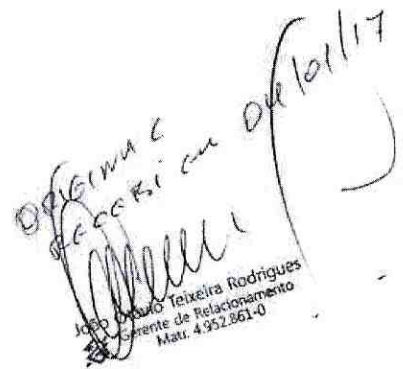 ORIGINAL
RECEBI EM 04/01/17
João Teixeira Rodrigues
Gerente de Relacionamento
Matr. 4.952.861-0